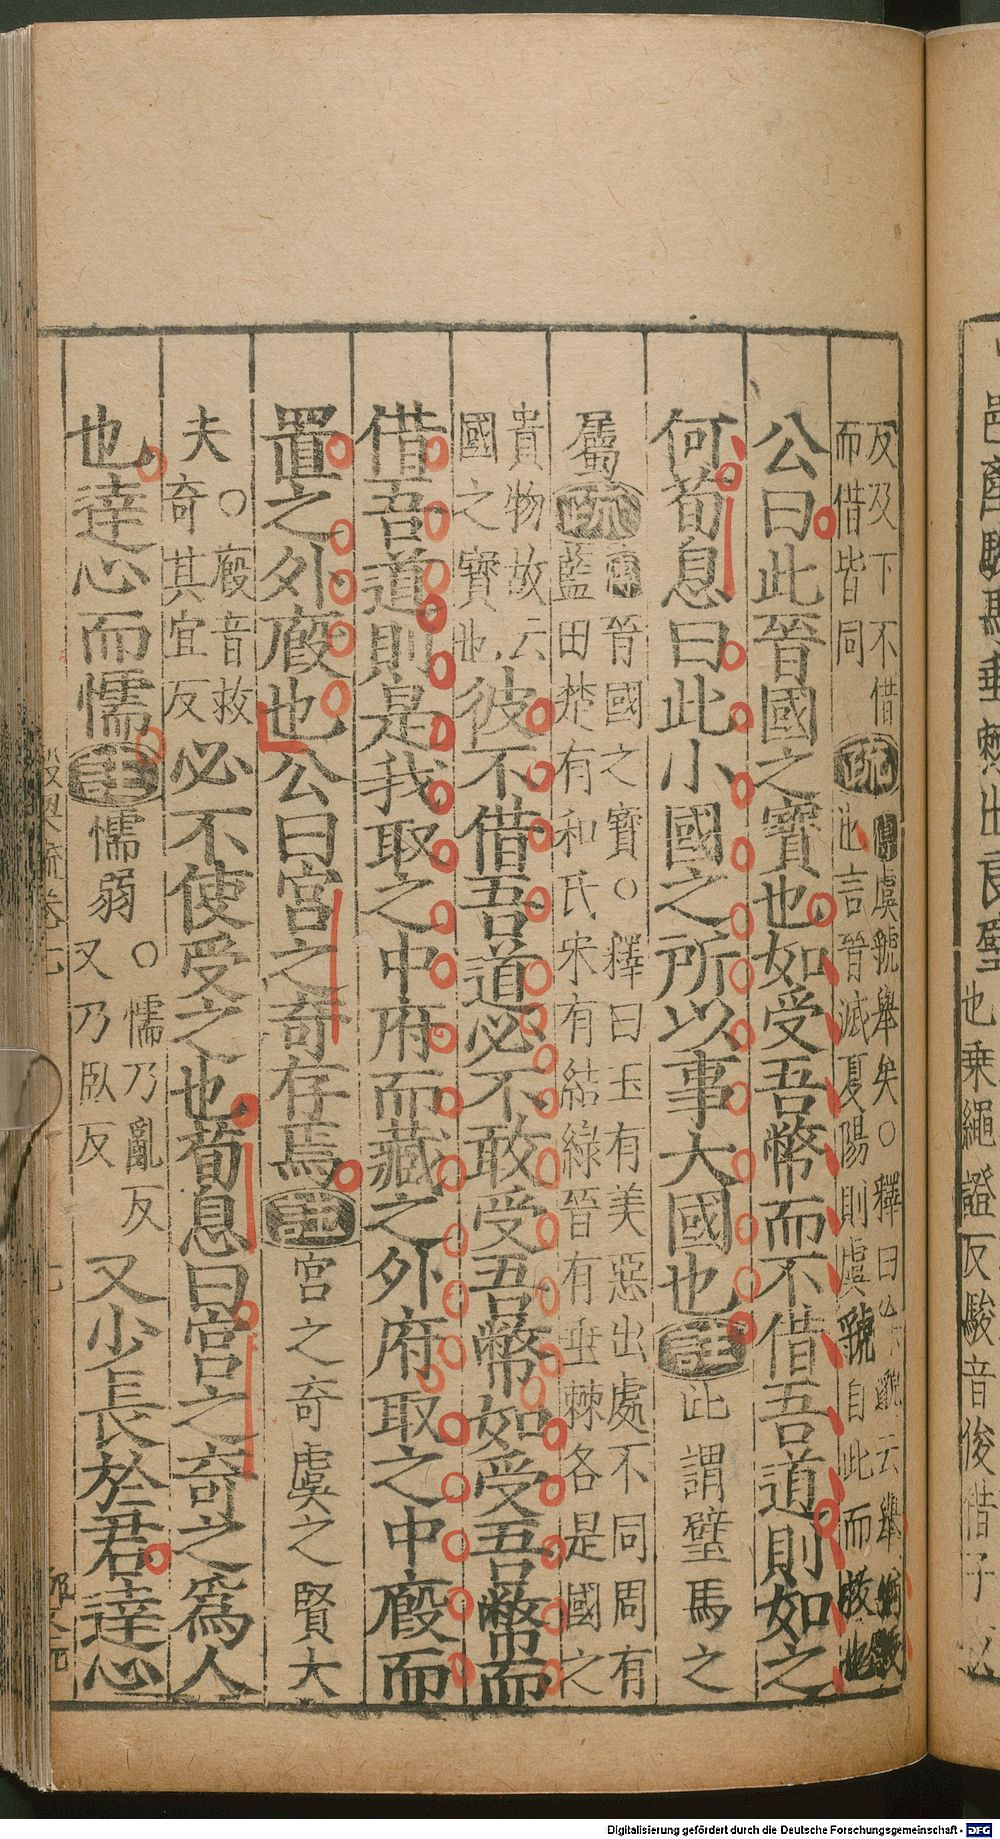 反及下不借
而借皆同
疏
傳虞虢舉矣○釋曰
也言晉滅夏陽則虞虢自此而
公曰此晉國之寶也如受吾幣而不借吾道則如之
何荀息曰此小國之所以事大國也註此謂璧馬之
屬疏
晉國之寶○釋曰玉有美惡出處不同周有
藍田楚有和氏宋有結綠晉有垂棘各是國之
貴物故云
國之寶也
彼不借吾道必不敢受吾幣如受吾幣而
借吾道則是我取之中府而藏之外府取之中廄而
置之外廄也公曰宮之奇存焉註宮之奇虞之賢大
夫
○廄音救
奇其宜反
必不使受之也荀息曰宮之奇之為人
也達心而懦註懦弱
○懦乃亂反
又乃臥反
又少長於君達心
也乘繩證反駿音俊借子
Digitalisierung gefördert durch die Deutsche Forschungsgemeinschaft - DFG